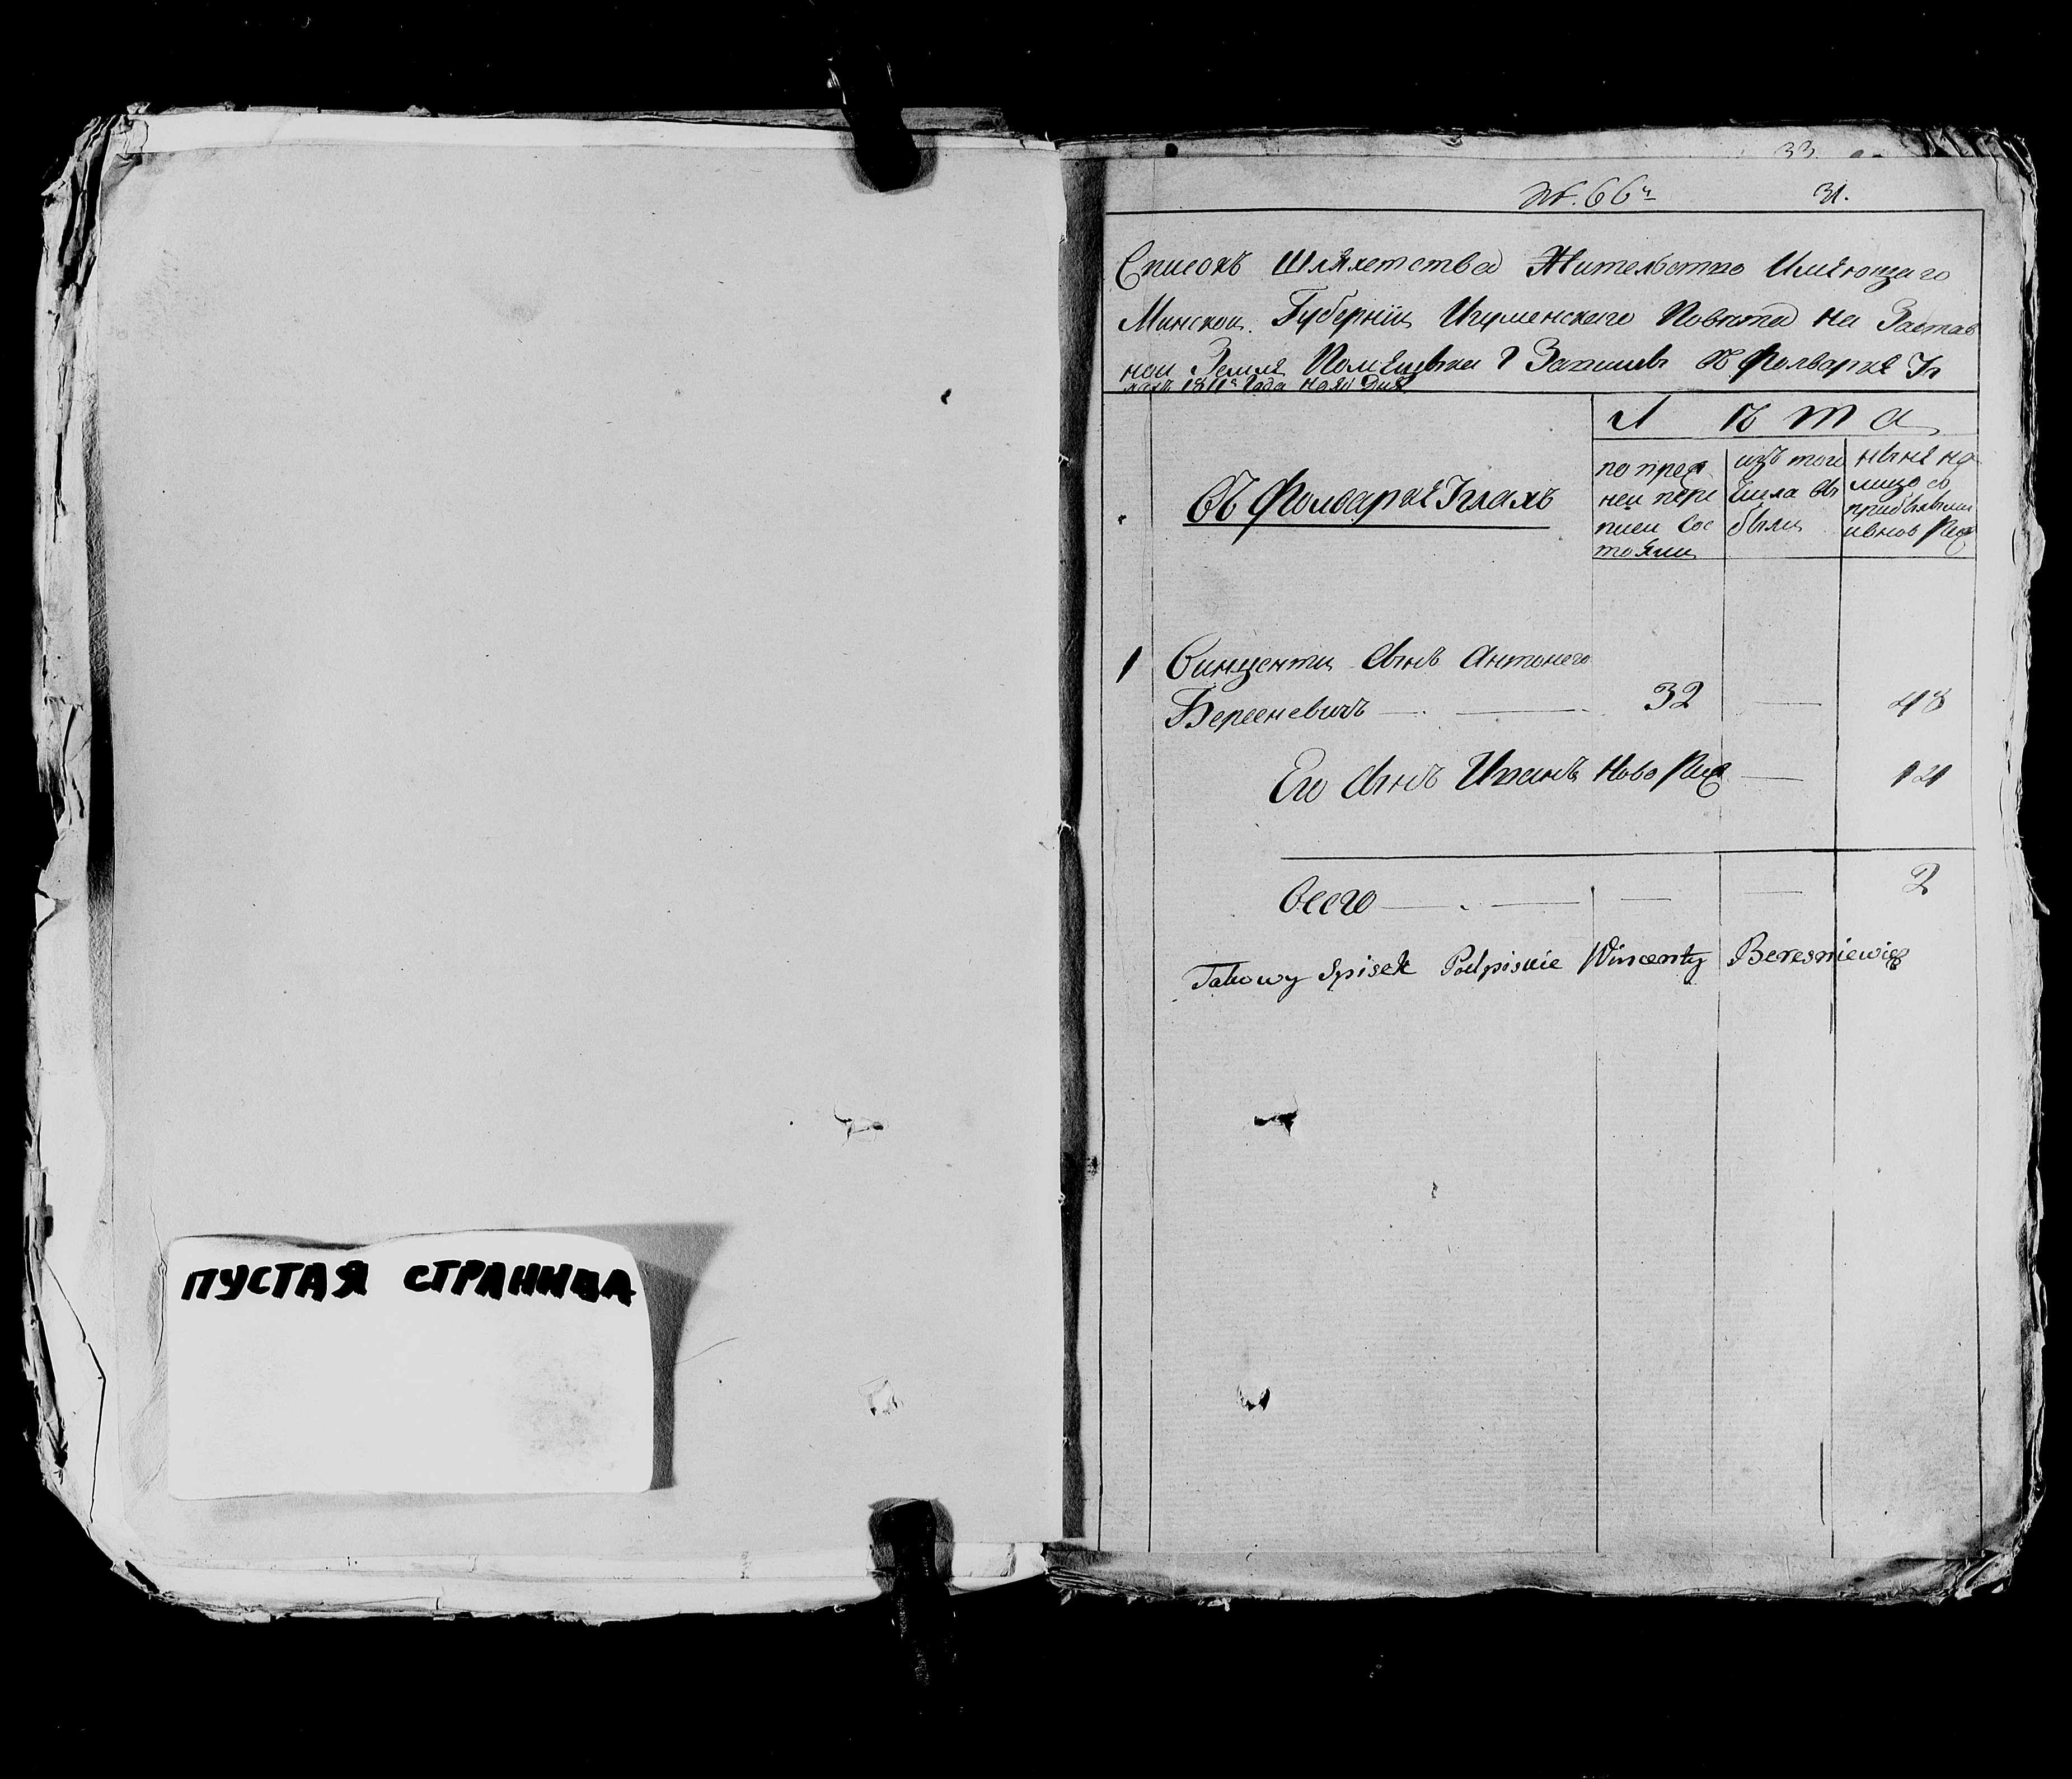 ПУСТАЯ СТРАНИЦА
33
№. 66й 31.
Списокъ Шляхетства Жительство Имѣющаго
Минской Губерніи Игуменскаго Повѣта на Застав
ной Землѣ Помѣщика Г въ Фолваркѣ
1811го Года Ноя Дня
Лѣта
въ Фолваркѣ Иглахъ
по пред
ней пере
писи Сос
тояли
изъ того
числа вы
были
нынѣ на
лицо со
прибывшим
и внов Рож
1 Винценти Сынъ Антонего
Бересневичъ — . — 32 — 48
Его Сынъ Иванъ Ново Рож — 12
Всего — . — — — 2
Takowy Spisek Podpisuie Wincenty Beresniewicz